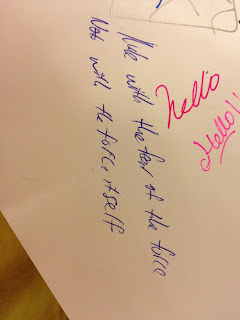 Rule with the fear of the force
Not with the force itself
hello
Hello!!